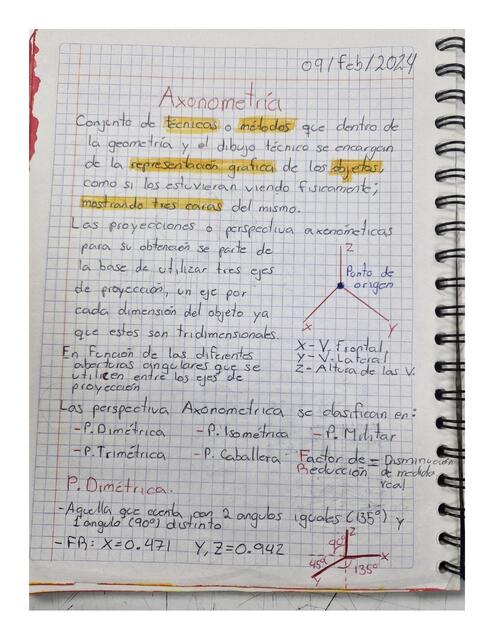 09/feb/2024
Axonometría
Conjunto de técnicas o métodos que dentro de
la geometría y el dibujo técnico se encargan
de la representación grafica de los objetos,
como si los estuvieran viendo fisicamente;
mostrando tres caras del mismo.
Las proyecciones o perspectiva axonométicas
para su obtención se parte de
la base de utilizar tres ejes
de proyección, un eje por
cada dimensión del objeto ya
que estos son tridimensionales.
Z
Punto de
origen
X
Y
X-V. Frontal,
Y-V. Lateral
Z-Altura de las V.
En Función de las diferentes
aberturas angulares que se
utilicen entre los ejes de
proyección
Las perspectiva Axonometrica se clasifican en:
-P. Dimétrica -P. Isométrica -P. Militar
-P. Trimétrica -P. Caballera
Factor de = Disminución
Reducción de medida
real
P. Dimétrica.
-Aquella que cuenta con 2 angulos iguales (135°) y
1 angulo (90°) distinto
-FR: X=0.471 Y, Z=0.942
Z
90°
X
45°
135°
Y